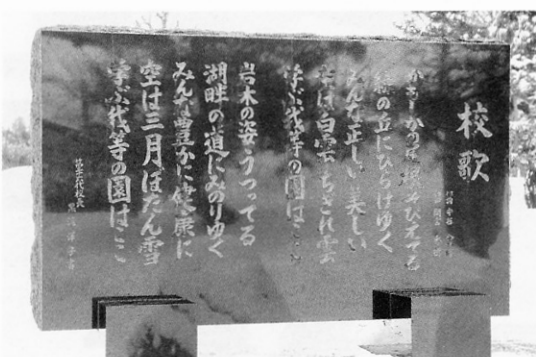 校歌
そびえてる
の丘にひらけゆく
みんな正しい美しい
空は白雲ちぎれ雲
学ぶ我等の園はここ
岩木の姿うつってる
湖畔の道にみのりゆく
みんな豊かに健康に
空は三月ぼたん雪
学ぶ我等の園はここ
代校長